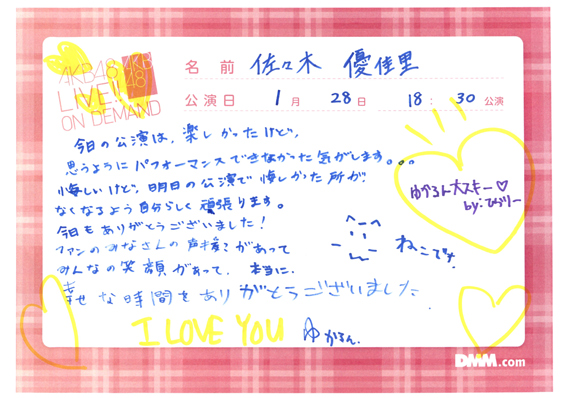 AKB48
LIVE!!
ON DEMAND
AKB
48
名前 佐々木 優佳里
公演日 1月 28日 18:30公演
今日の公演は、楽しかったけど、
思うようにパフォーマンスできなかった気がします。。。
悔しいけど、明日の公演で悔しかった所が
なくなるよう自分らしく頑張ります。
今日もありがとうございました!
ファンのみなさんの声援があって
みんなの笑顔があって、本当に、
幸せな時間をありがとうございました
ゆかるん大スキー♡
by:ひらりー
ねこです。
I LOVE YOU ゆかるん.
DMM.com